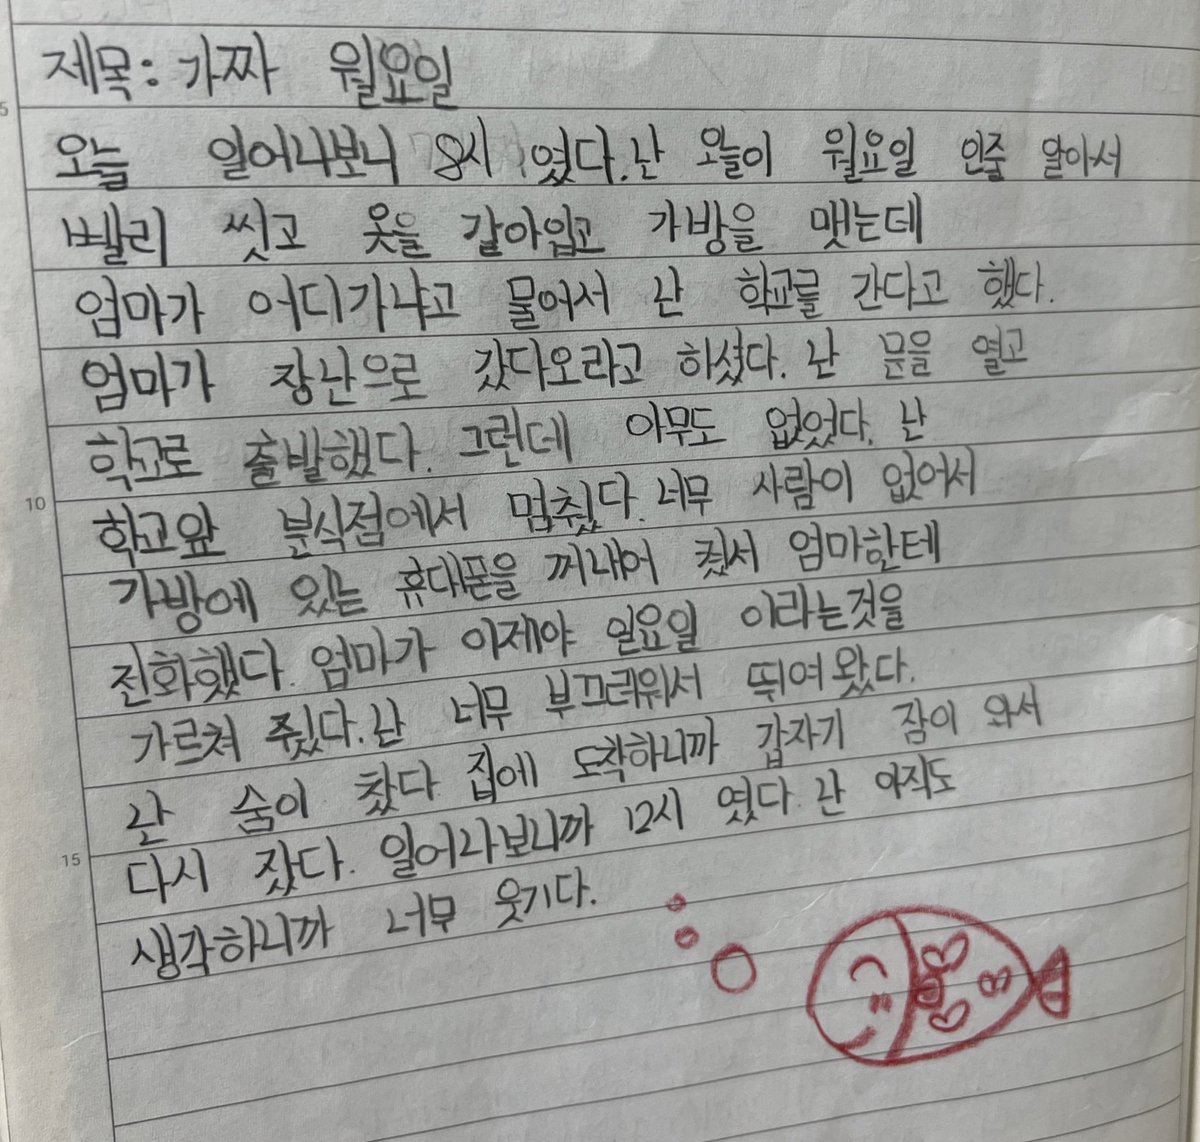 제목: 가짜 월요일
오늘 일어나보니 8시 였다. 난 오늘이 월요일 인줄 알아서
빨리 씻고 옷을 갈아입고 가방을 맷는데
엄마가 어디가냐고 물어서 난 학교를 간다고 했다.
엄마가 장난으로 갔다오라고 하셨다. 난 문을 열고
학교로 출발했다. 그런데 아무도 없었다. 난
학교앞 분식점에서 멈췄다. 너무 사람이 없어서
가방에 있는 휴대폰을 꺼내어 켰서 엄마한테
전화했다. 엄마가 이제야 일요일 이라는것을
가르쳐 줬다. 난 너무 부끄러워서 뛰여왔다.
난 숨이 찼다 집에 도착하니까 갑자기 잠이 와서
다시 잤다. 일어나보니까 12시 였다. 난 아직도
생각하니까 너무 웃기다.
5
10
15